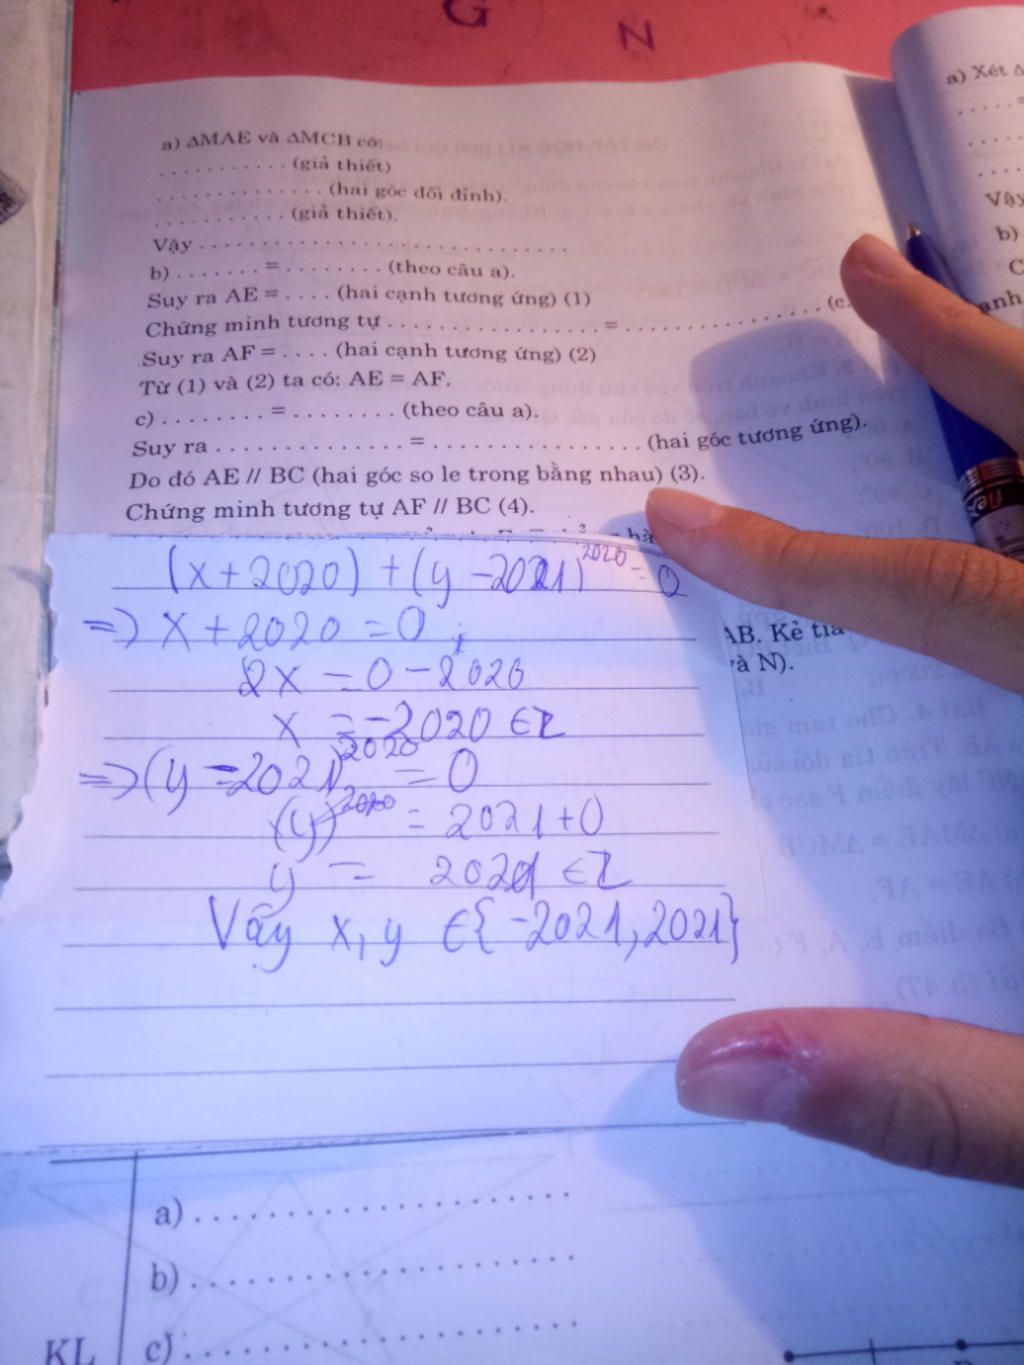 G
N
a) Xét Δ
a) ΔMAE và ΔMCB có:
. . . . . . . . . . (giả thiết)
. . . . . . . . . . . . . (hai góc đối đỉnh).
. . . . . . . . . . (giả thiết).
Vậy . . . . . . . . . . . . . . . . . . . . . . . . . . . . .
b) . . . . . . . = . . . . . . . . (theo câu a).
Suy ra AE = . . . . (hai cạnh tương ứng) (1)
Chứng minh tương tự . . . . . . . . . . . . . . . . = . . . . . . . . . . . . . . . (c.
Suy ra AF = . . . . (hai cạnh tương ứng) (2)
Từ (1) và (2) ta có: AE = AF.
c) . . . . . . . . = . . . . . . . . (theo câu a).
Suy ra . . . . . . . . . . . . . . = . . . . . . . . . . . . . . . . (hai góc tương ứng).
Do đó AE // BC (hai góc so le trong bằng nhau) (3).
Chứng minh tương tự AF // BC (4).
Vậy
b)
C
anh
(x+2020) + (y-2021)^2020 = 0
=> x+2020 = 0
2x = 0-2020
x = -2020 ∈ Z
=> (y-2021)^2020 = 0
(y)^2020 = 2021+0
y = 2021 ∈ Z
Vậy x, y ∈ {-2021, 2021}
AB. Kẻ tia
và N).
a) . . . . . . . . . . . . . . . . . . . . .
b) . . . . . . . . . . . . . . . . . . . . .
KL
c) . . . . . . . . . . . . . . . . . . . . .